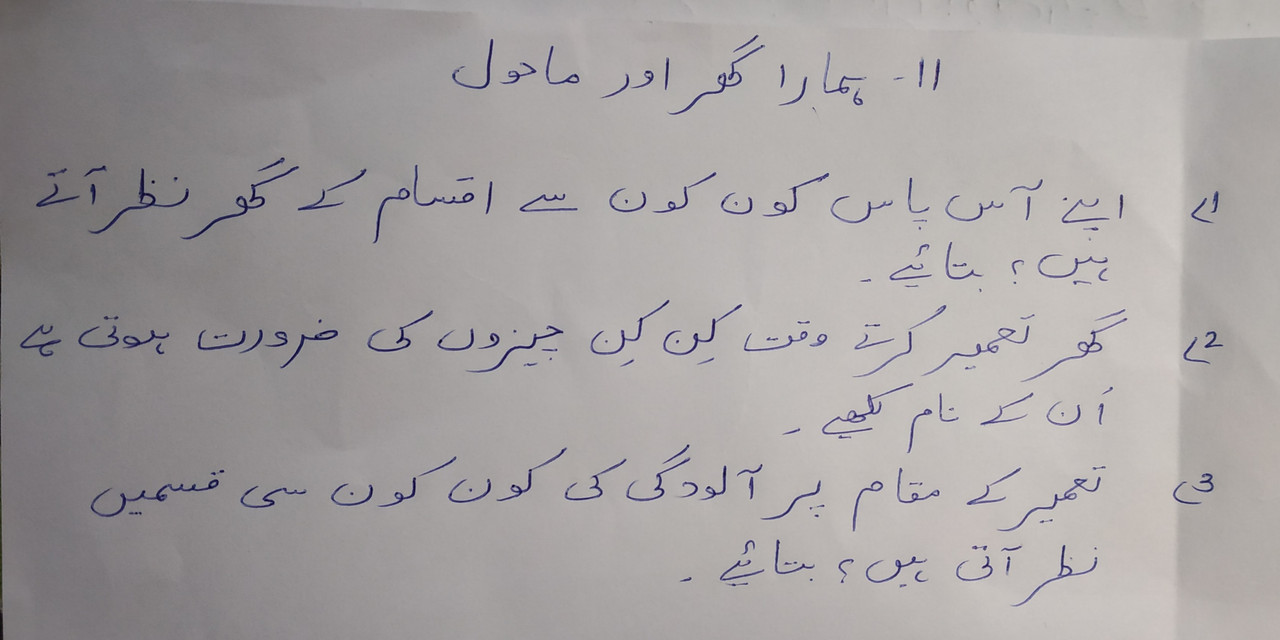 11۔ ہمارا گھر اور ماحول
1) اپنے آس پاس کون کون سے اقسام کے گھر نظر آتے
ہیں؟ بتائیے۔
2) گھر تعمیر کرتے وقت کِن کِن چیزوں کی ضرورت ہوتی ہے
اُن کے نام لکھیے۔
3) تعمیر کے مقام پر آلودگی کی کون کون سی قسمیں
نظر آتی ہیں؟ بتائیے۔